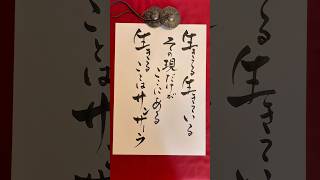 生きてる生きている
その現だけが
ここにある
生きることはサンサーラ